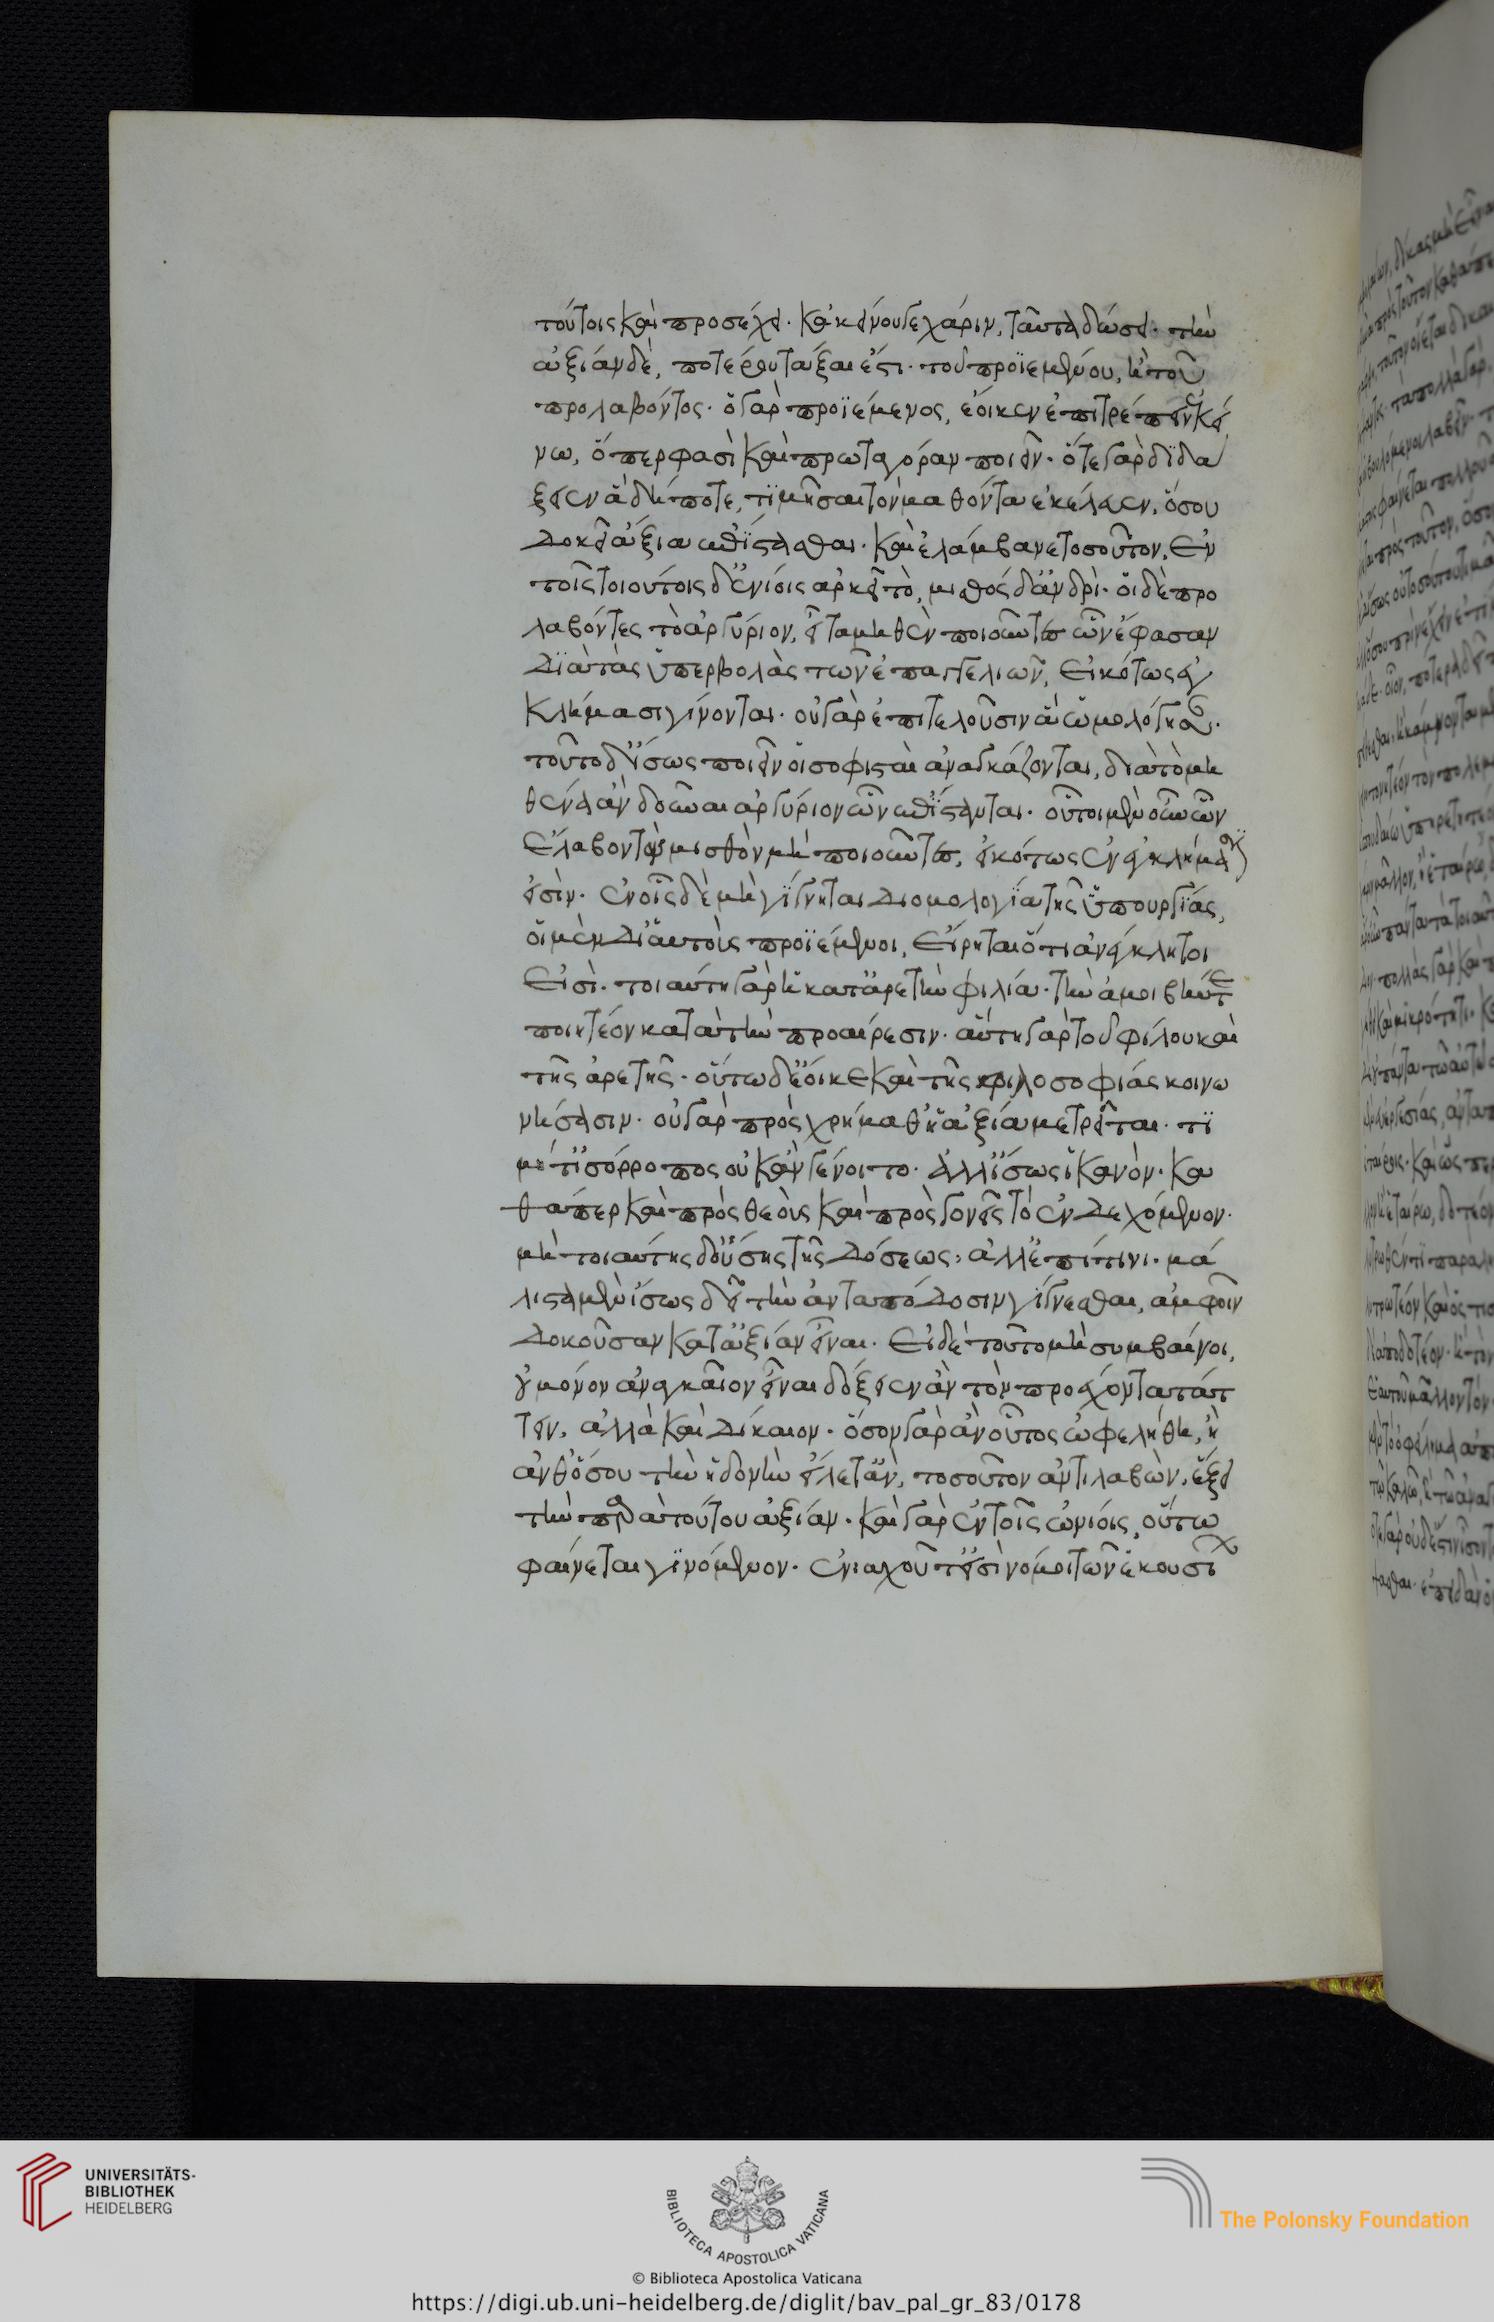 τούτοις καὶ προσέχει. κακείνου δε χάριν, ταῦτα δώσει. τὴν
ἀξίαν δὲ, ποτέρου τάξαι ἐστι. τοῦ προϊεμένου, ἢ τοῦ
προλαβόντος. ὁ γὰρ προϊέμενος, ἔοικεν ἐπιτρέπειν ἐκεί
νω, ὅπερ φασὶ καὶ πρωταγόραν ποιεῖν. ὅτε γὰρ διδα
ξειεν ἃ δή ποτε, τιμῆσαι τὸν μαθόντα ἐκέλευεν, ὅσου
δοκεῖ ἄξια ἐπίστασθαι. καὶ ἐλάμβανε τοσοῦτον. Ἐν
τοῖς τοιούτοις δ' ἐνίοις ἀρκεῖ τὸ, μισθὸς δ' ἀνδρὶ. οἱ δὲ προ
λαβόντες τὸ ἀργύριον, εἶτα μηθὲν ποιοῦντες ὧν ἔφασαν
διὰ τὰς ὑπερβολὰς τῶν ἐπαγγελιῶν, εἰκότως ἐγ
κλήμασι γίνονται. οὐ γὰρ ἐπιτελοῦσιν ἃ ὡμολόγησαν.
τοῦτο δ' ἴσως ποιεῖν οἱ σοφισταὶ ἀναγκάζονται, διὰ τὸ μη
θένα ἂν δοῦναι ἀργύριον ὧν ἐπίστανται. οὗτοι μὲν οὖν ὧν
ἔλαβον τὸν μισθὸν μὴ ποιοῦντες, εἰκότως ἐν ἐγκλήμασιν
εἰσὶν. ἐν οἷς δὲ μὴ γίγνηται διομολογία τῆς ὑπουργίας,
οἱ μὲν δι' αὐτοὺς προϊέμενοι, εἴρηται ὅτι ἀνέγκλητοι
εἰσὶ. τοιαύτη γὰρ ἡ κατ' ἀρετὴν φιλία. τὴν ἀμοιβήν τε
ποιητέον κατὰ τὴν προαίρεσιν. αὕτη γὰρ τοῦ φίλου καὶ
τῆς ἀρετῆς. οὕτω δ' ἔοικε καὶ τῆς φιλοσοφίας κοινω
νήσασιν. οὐ γὰρ πρὸς χρήμαθ' ἡ ἀξία μετρεῖται. τι
μή τ' ἰσόρροπος οὐκ ἂν γένοιτο. ἀλλ' ἴσως ἱκανὸν. κα
θάπερ καὶ πρὸς θεοὺς καὶ πρὸς γονεῖς τὸ ἐνδεχόμενον.
μὴ τοιαύτης δ' οὔσης τῆς δόσεως, ἀλλ' ἐπί τινι. μά
λιστα μὲν ἴσως δεῖ τὴν ἀνταπόδοσιν γίγνεσθαι, ἀμφοῖν
δοκοῦσαν κατ' ἀξίαν εἶναι. Εἰ δὲ τοῦτο μὴ συμβαίνοι,
οὐ μόνον ἀναγκαῖον εἶναι δόξειεν ἂν τὸν προέχοντα τάτ
τειν, ἀλλὰ καὶ δίκαιον. ὅσον γὰρ ἂν οὗτος ὠφελήθη, ἢ
ἀνθ' ὅσου τὴν ἡδονὴν εἵλετ' ἂν, τοσοῦτον ἀντιλαβὼν, ἕξει
τὴν παρὰ τούτου ἀξίαν. καὶ γὰρ ἐν τοῖς ὠνίοις, οὕτω
φαίνεται γινόμενον. ἐνιαχοῦ τ' εἰσὶ νόμοι τῶν ἑκουσί
UNIVERSITÄTS-
BIBLIOTHEK
HEIDELBERG
BIBLIOTECA APOSTOLICA VATICANA
The Polonsky Foundation
© Biblioteca Apostolica Vaticana
https://digi.ub.uni-heidelberg.de/diglit/bav_pal_gr_83/0178